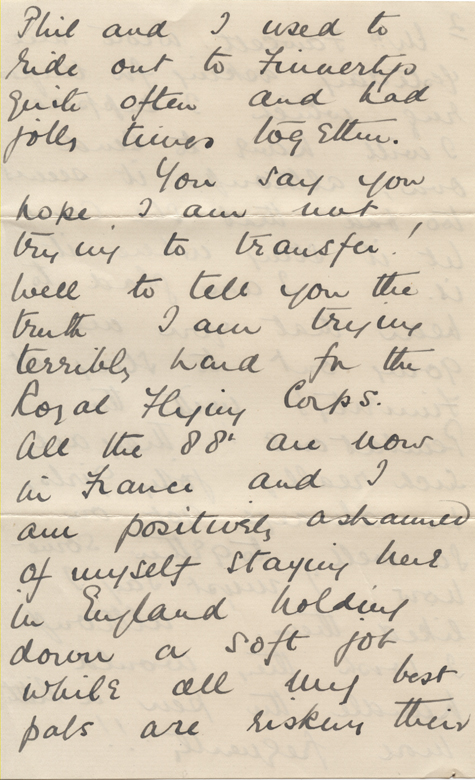 Phil and I used to
ride out to Finnertys
quite often and had
jolly times together.
You say you
hope I am not
trying to transfer!
Well to tell you the
truth I am trying
terribly hard for the
Royal Flying Corps.
All the 88th are now
in France and I
am positively ashamed
of myself staying here
in England holding
down a soft job
while all my best
pals are risking their